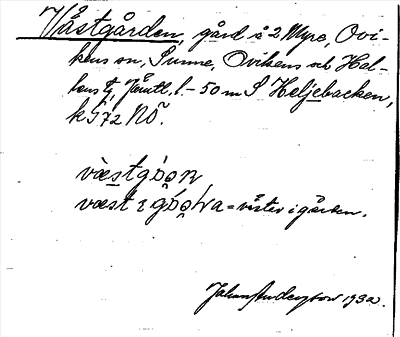 Västgården, gård å 2 Myre, Ovi-
kens sn, Sunne, Ovikens och Hal-
lens tg, Jämtl. l. - 50 m S Heljebacken,
k 572 NÖ.
væstgɔ́ɔn
væst i gɔ́ɔḷa = väster i gården.
Johan Anderson 1932.